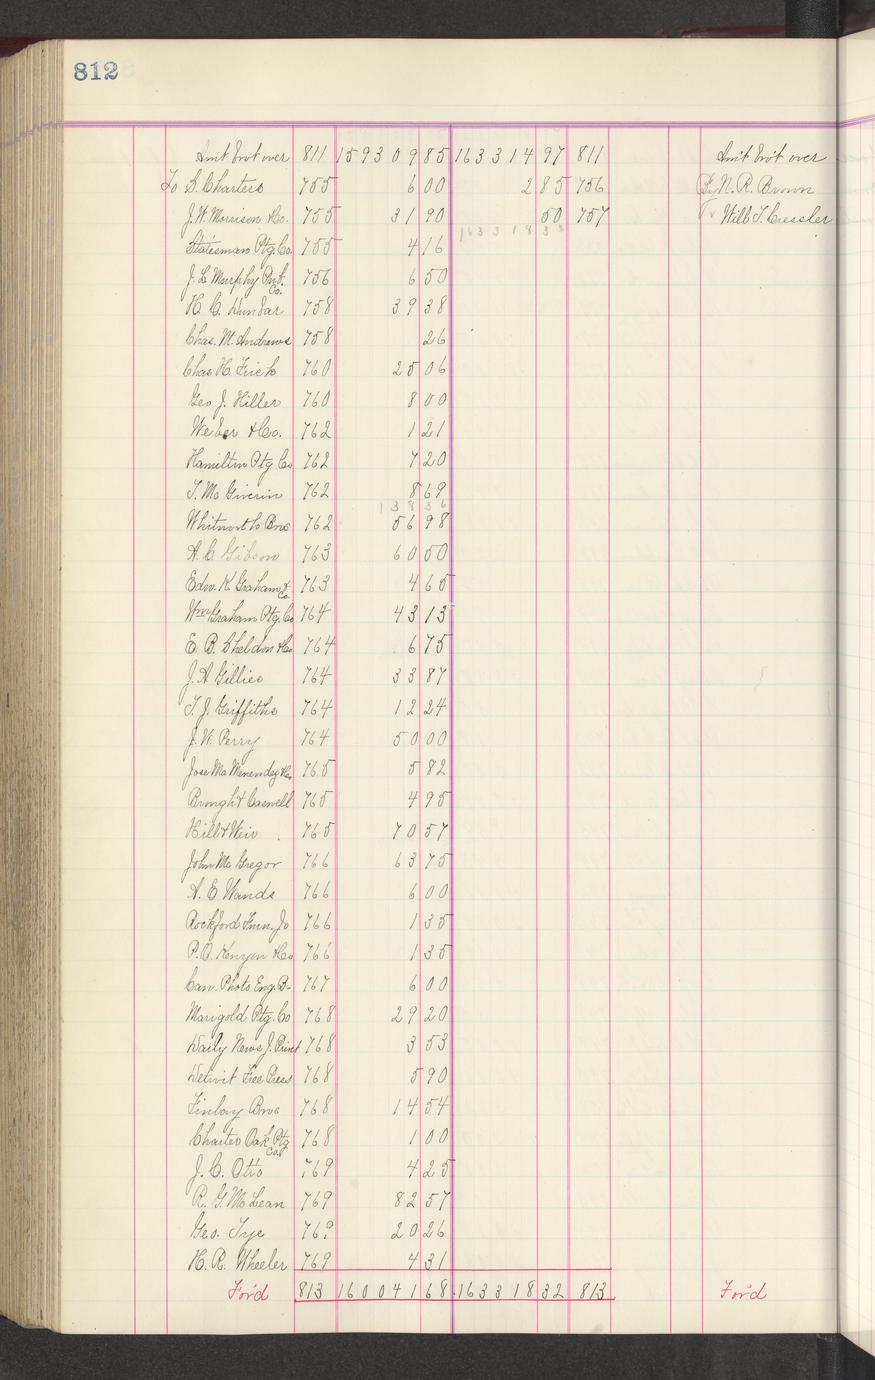 812
Amt Brot over 811 159309 85 163314 97 811 Am't Bro't over
To S. Charters 755 6 00 2 85 756 By N. R. Brown
J. W. Morrison & Co. 755 31 90 50 757 Will T. Cressler
163318 33
Statesman Ptg. Co. 755 4 16
J. L. Murphy Pub. Co. 756 6 50
H. C. Dunbar 758 39 38
Chas. M. Andrews 758 26
Chas H. Frich 760 25 06
Geo J. Hiller 760 8 00
Weber & Co. 762 1 21
Hamilton Ptg Co 762 7 20
T. McGiverin 762 8 69
138 36
Whitworth Bros 762 56 98
A. C. Gibson 763 60 50
Edw. K. Graham & Co. 763 4 65
Wm Graham Ptg. Co 764 43 13
E. B. Sheldon & Co 764 6 75
J. A Gillies 764 33 87
T. J. Griffiths 764 12 24
J. W. Perry 764 50 00
Jose Ma Menendez & Co 765 5 82
Brough & Caswell 765 4 95
Hill & Weir 765 70 57
John McGregor 766 63 75
A. E Wands 766 6 00
Rockford Furn. Jo 766 1 35
P. O. Kenyon & Co 766 1 35
Can. Photo Eng. B- 767 6 00
Marigold Ptg. Co 768 29 20
Daily News J. Print 768 3 53
Detroit Free Press 768 5 90
Finlay Bros 768 14 54
Charter Oak Ptg Co 768 1 00
J. C. Otto 769 4 25
R. G. McLean 769 82 57
Geo. Tye 769 20 26
H. R. Wheeler 769 4 31
For'd 813 160041 68 163318 32 813 For'd